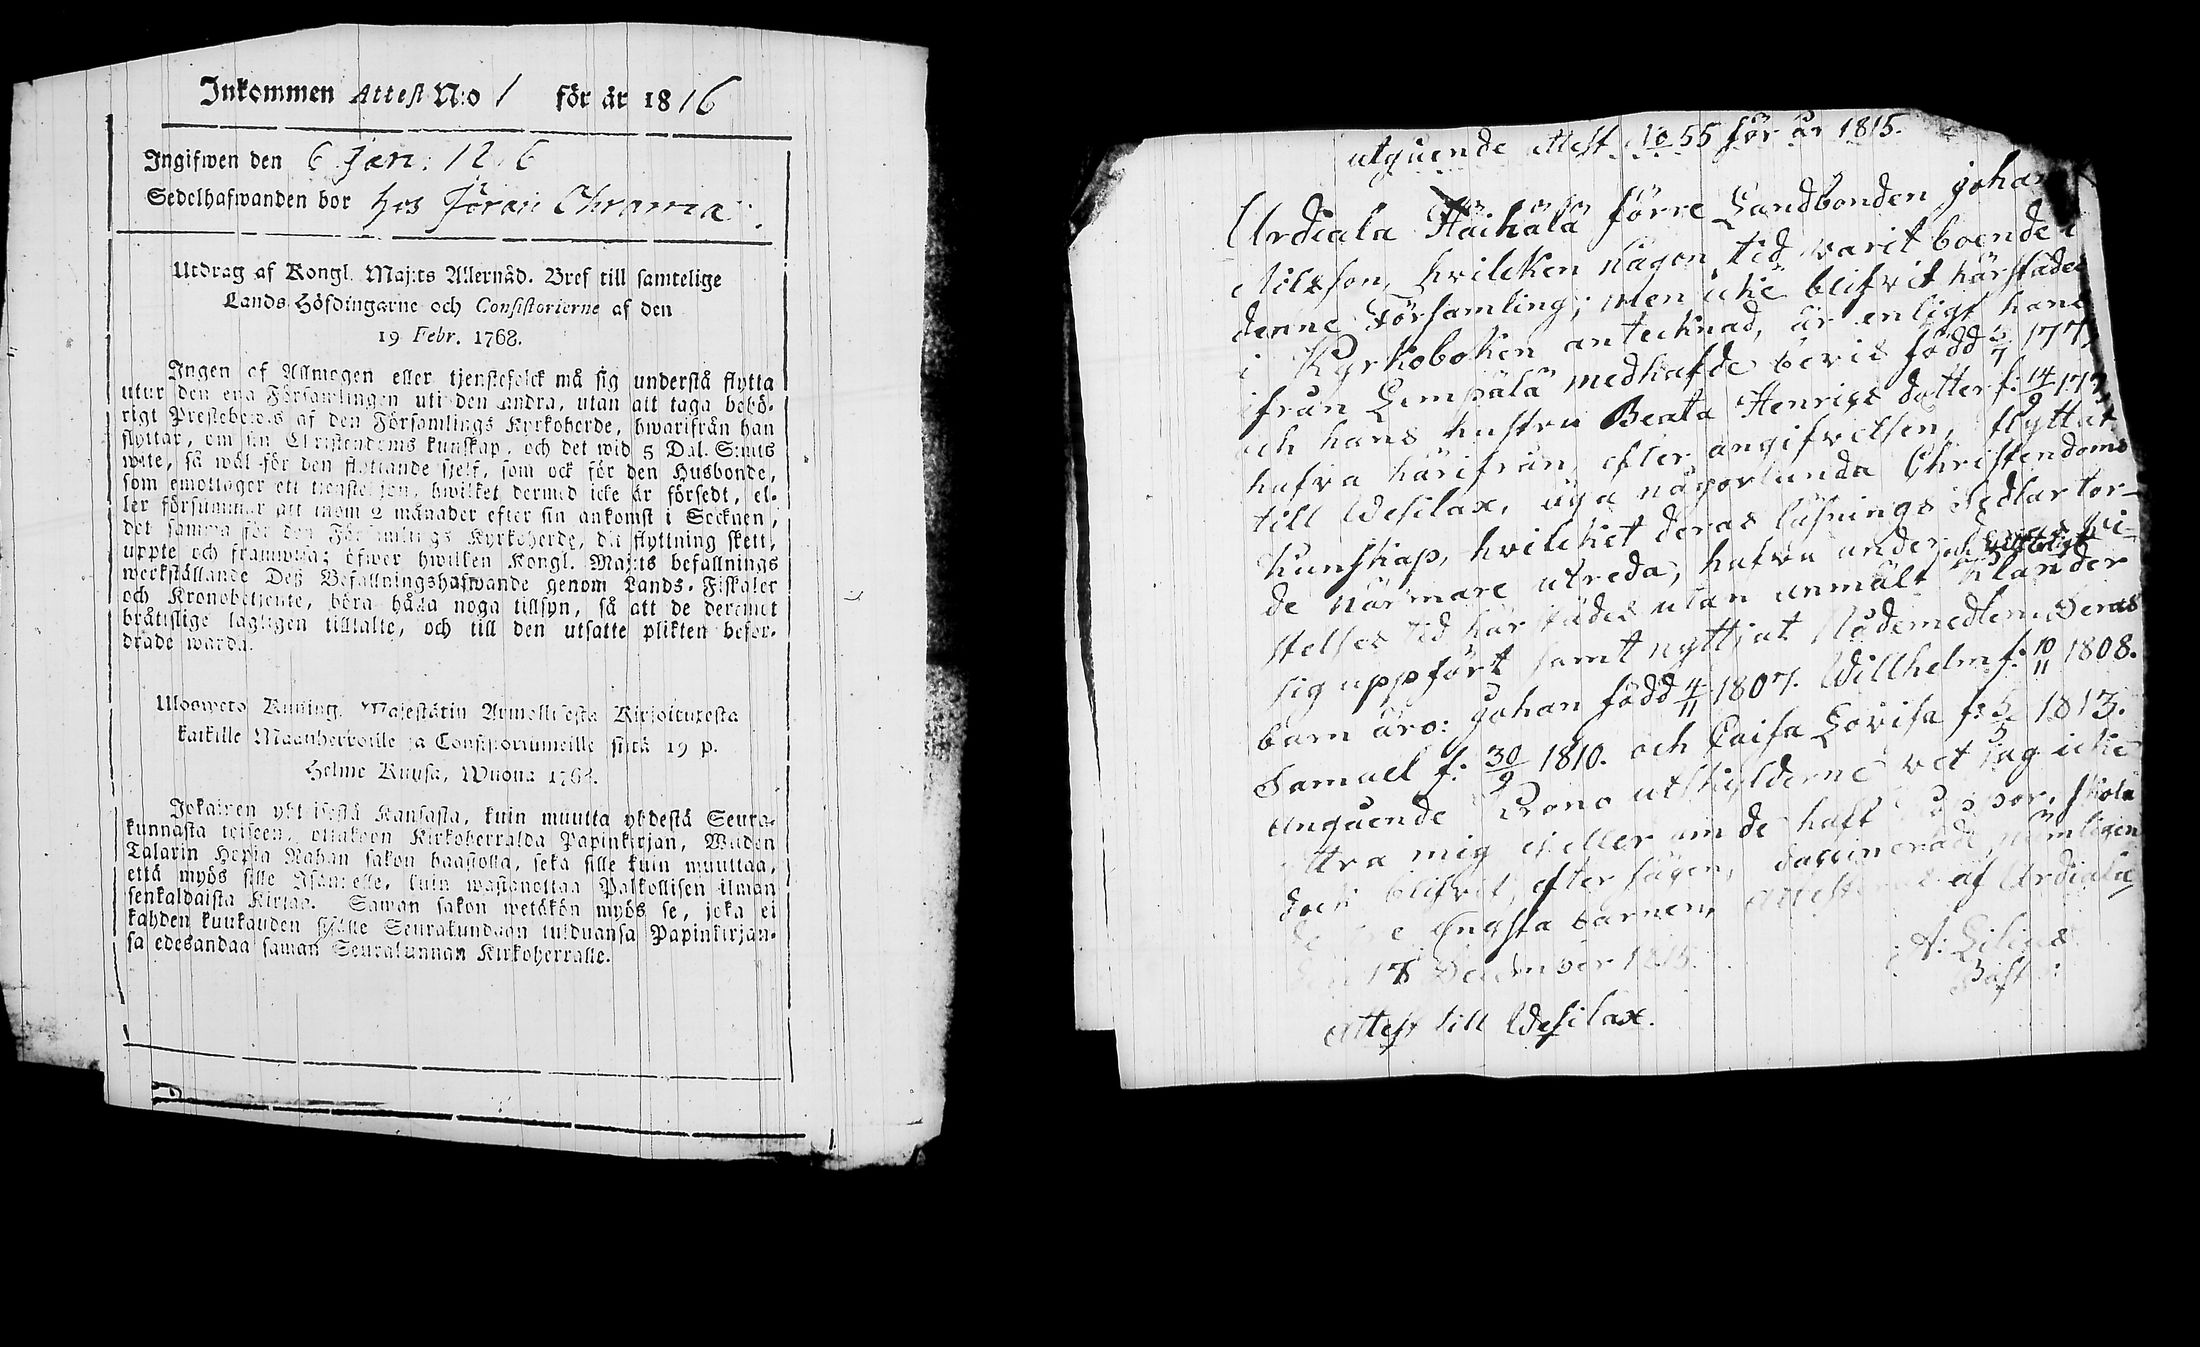 Inkommen Attest N:o 1 för år 1816
Ingifwen den 6 Jan: 1816
Sedelhafwanden bor hos Jöran
Utdrag af Kongl. Maj:ts Allernåd. Bref till samtelige
Lands-Höfdingarne och Consistorierne af den
19 Febr. 1768.
Ingen af Allmogen eller tjenstefolck må sig understå flytta
utur den ena Församlingen uti den andra, utan att taga behö-
rigt Prestebewis af den Församlings Kyrkoherde, hwarifrån han
flyttar, om sin Christendoms kunskap, och det wid 5 Dal. S:mts
wite, så wäl för den flyttande sjelf, som ock för den Husbonde,
som emottager ett tienstehjon, hwilket dermed icke är försedt, el-
ler försummar att inom 2 månader efter sin ankomst i Socknen,
det samma för den Församlings Kyrkoherde, dit flyttning skett,
uppte och framwisa; öfwer hwilken Kongl. Maj:ts befallnings
werkställande Deß Befallningshafwande genom Lands-Fiskaler
och Kronobetjente, böra hålla noga tillsyn, så att de deremot
bråttslige lagligen tilltalte, och till den utsatte plikten befor-
drade warda.
Ulosweto Kuning. Majestätin Armollisesta Kirjoituxesta
kaikille Maanherroille ja Consistoriumeille siitä 19 p.
Helme Kuusa, Wuonna 1768.
Jokainen yhteisestä Kansasta, kuin muutta yhdestä Seura-
kunnasta toiseen, ottakoon Kirkoherralda Papinkirjan, Wiiden
Talarin Hopia Rahan sakon haastolla, sekä sille kuin muuttaa,
että myös sille Isännelle, kuin wastanottaa Palkollisen ilman
senkaldaista Kirjaa. Saman sakon wetäkön myös se, joka ei
kahden kuukauden sisälle Seurakundaan tulduansa Papinkirjan-
sa edesandaa saman Seurakunnan Kirkoherralle.
utgående attest No 55 för år 1815.
Urdiala Häihälä förre Landbonden Johan
Nilsson, hvilcken någon tid varit boende i
denne Församling; men icke blifvit härstädes
i Kyrkoboken antecknad, är enligt hans
ifrån Lempälä medhafde bevis född 5/7
och hans hustru Beata Henrics dotter f: 14/9
hafva härifrån, efter angifvelsen, flyttat
till Wesilax, äga någorlunda Christendoms
kunskap, hvilcket deras läsnings Sedlar tor-
de närmare utreda, hafva under deras vi-
stelses tid härstädes utan anmält klander
sig uppfört samt nyttjat Nådemedlen. Deras
barn äro: Johan född 4/11 1807. Willhelm f: 10/11 1808.
Samuel f: 30/9 1810. och Caisa Lovisa f: 5/5 1813.
Angående Crono utskylderne vet jag icke
yttra mig ei eller om de haft koppor, skola
dock blifvit, efter sägen, vaccinerade, nämligen
de tre yngsta barnen, attesterar af Urdiala
den 17 December 1815.
A: Lilius
Past:
Attest till Wesilax.